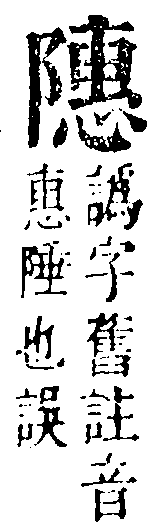 譌字舊註音
惠陲也誤